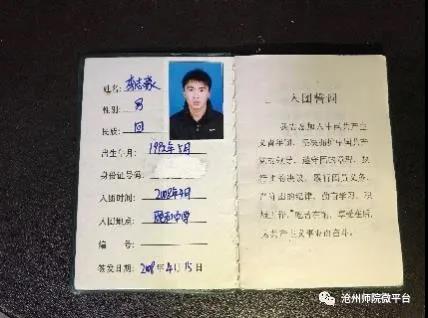 姓名:
性别: 男
民族: 回
出生年月: 1992年5月
身份证号码:
入团时间:
入团地点:
编 号:
签发日期:
入团誓词
我志愿加入中国共产主
义青年团，坚决拥护中国共产
党的领导，遵守团的章程，执
行团的决议，履行团员义务，
严守团的纪律，勤奋学习，积
极工作，吃苦在前，享受在后，
为共产主义事业而奋斗。
沧州师院微平台